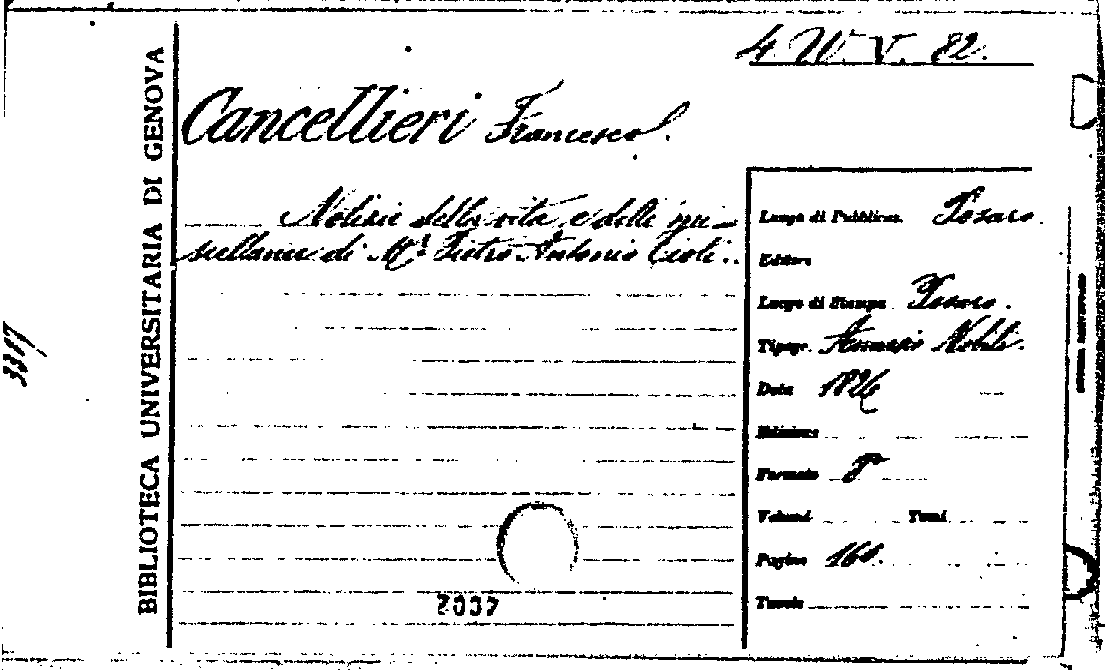 4. W. V. 82.
Cancellieri Francesco.
Notizie della vita e delle mi-
scellanee di Mr. Pietro Antonio Tioli.
BIBLIOTECA UNIVERSITARIA DI GENOVA
Luogo di Pubblicaz. Pesaro.
Editore
Luogo di Stampa Pesaro.
Tipogr. Annesio Nobili.
Data 1826
Edizione
Formato 8°
Volumi Tomi
Pagine 160.
Tavole